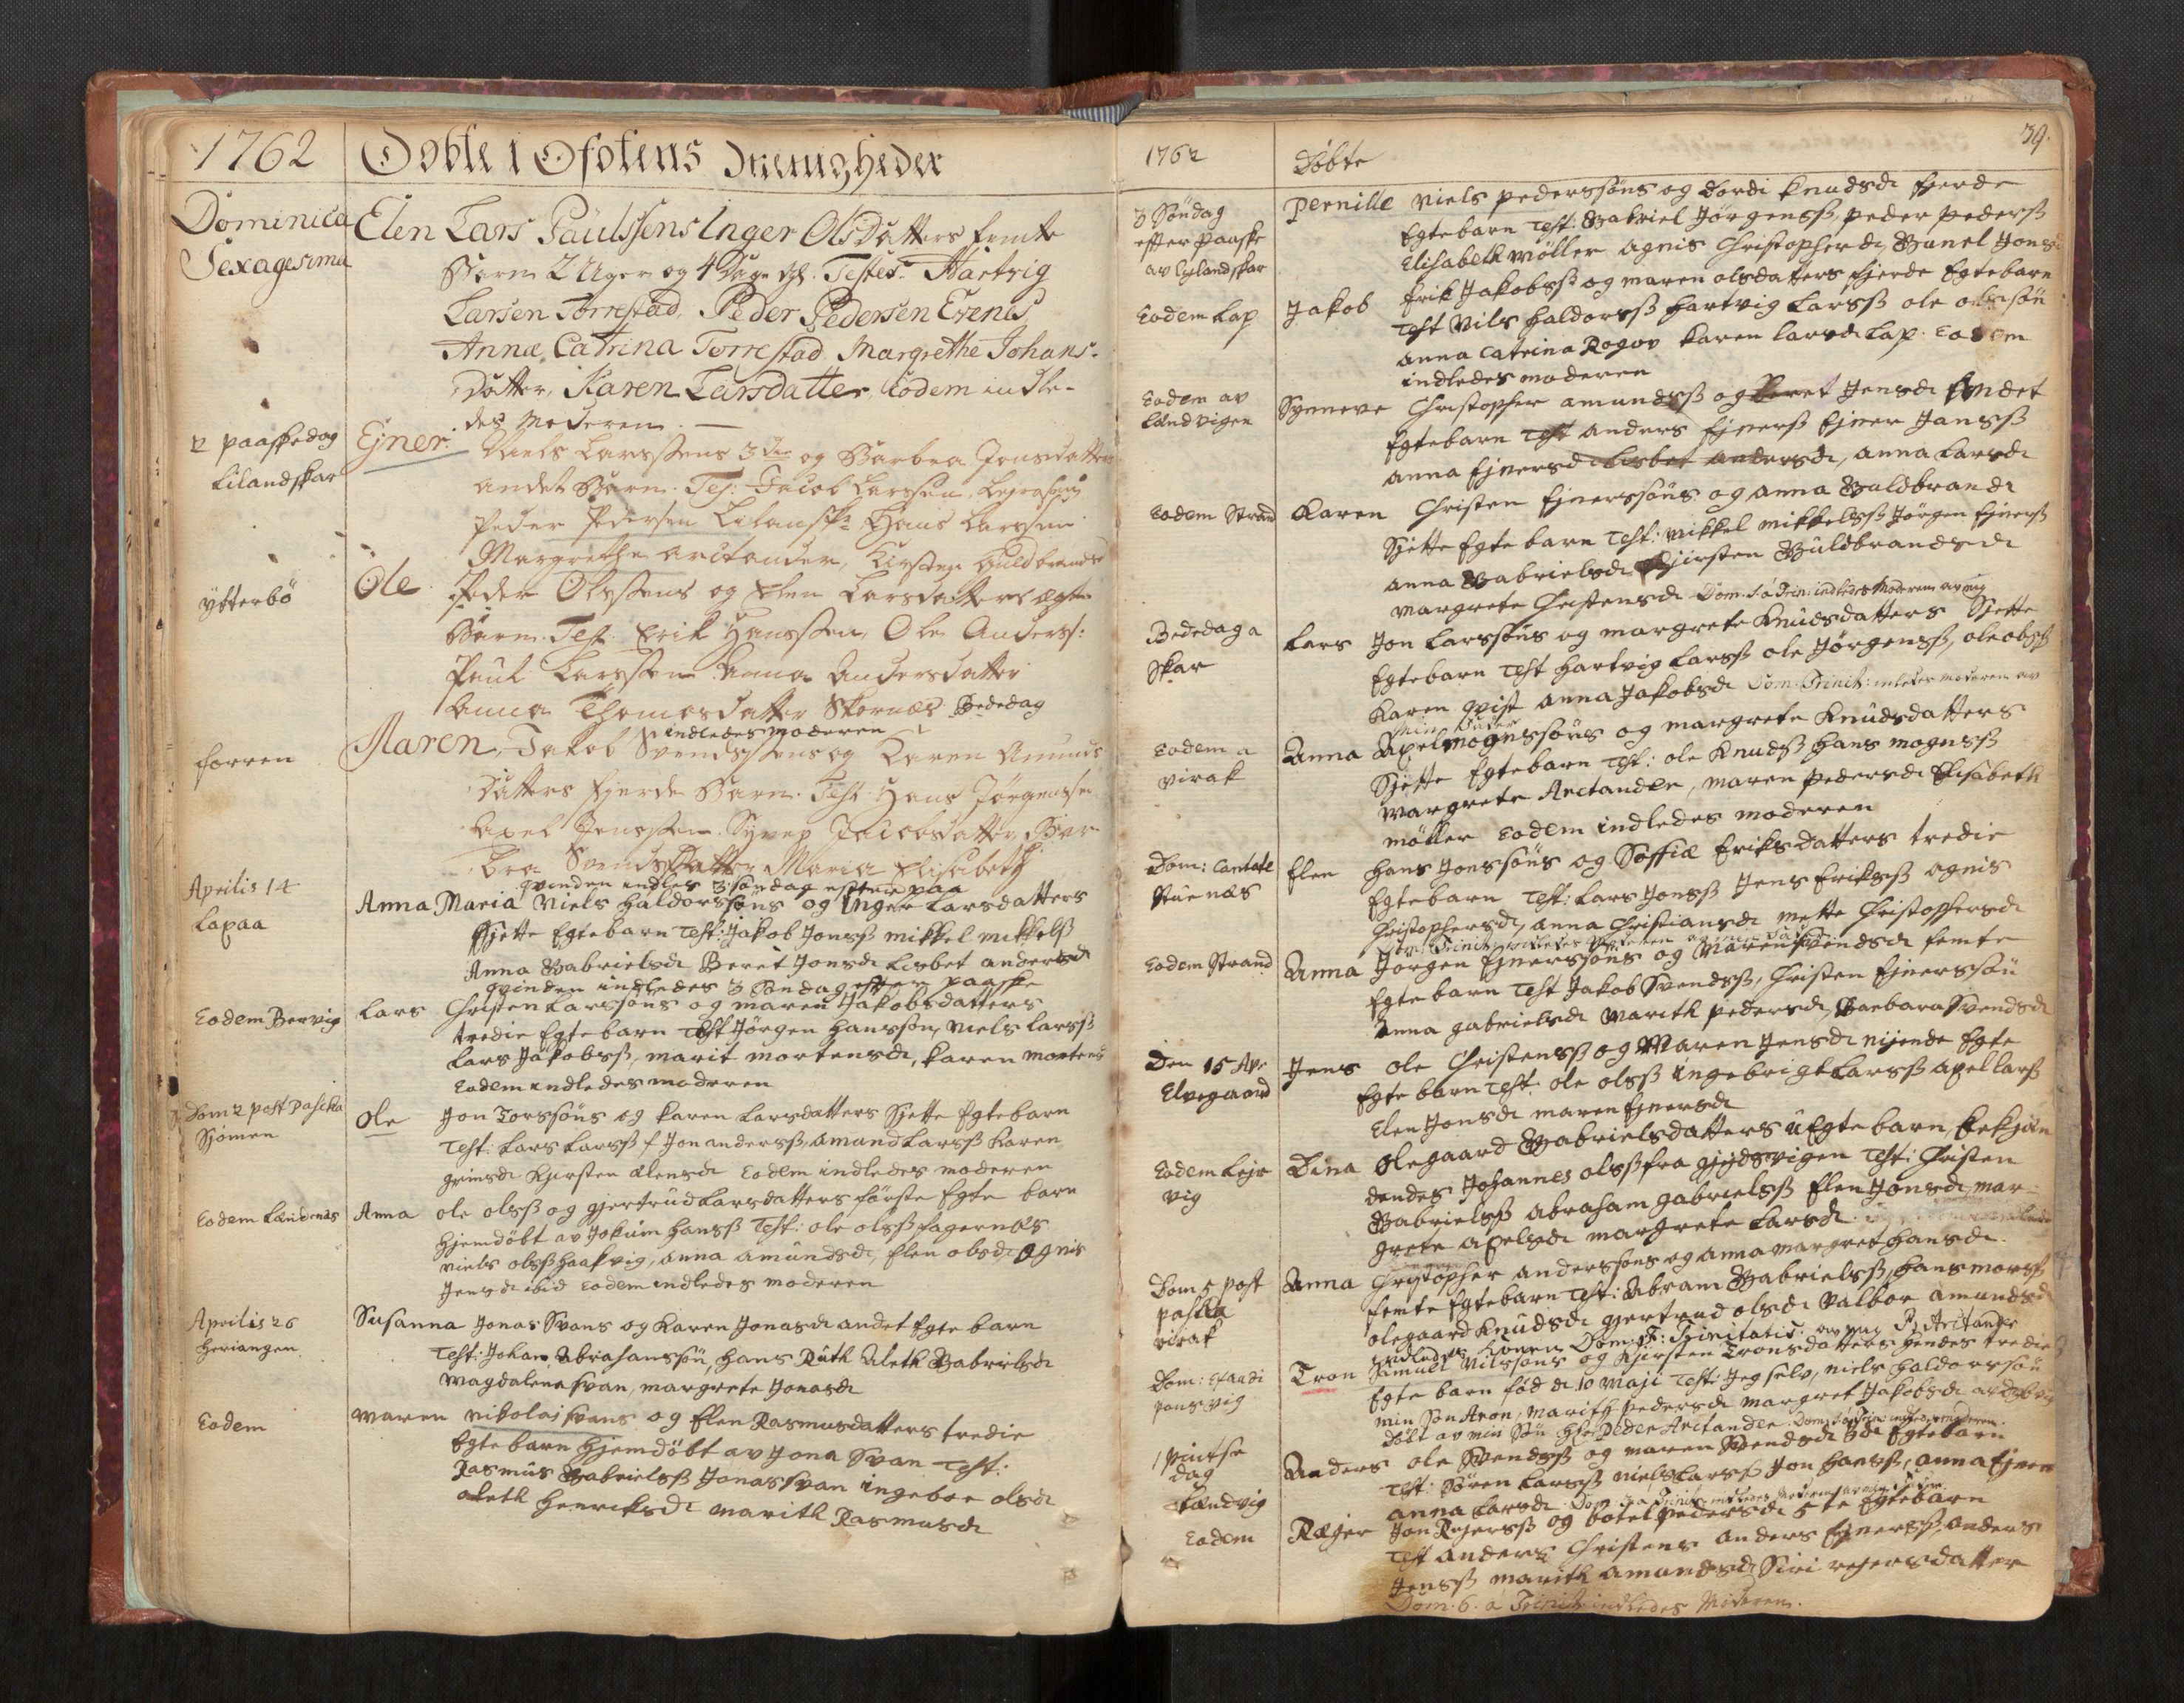 1762
Døbte i Ofotens Menigheder
Dominica
Sexagesima
Elen Lars Paulssens Inger Olsdatters femte
Barn 2 Uger og 4 Dage gl. Testes. Hartvig
Larsen Torrestad, Peder Pedersen Evenes
Anna Catrina Torrestad Margrethe Johans-
datter, Karen Larsdatter, Eodem indle-
des Moderen.
2 paaskedag
Lilandskar
Ejner. Niels Larssens 3die og Barbra Jensdatters
andet Barn. Tes: Jacob Larssen,
Peder Pedersen Hans Larssen
Margrethe Arctander, Kirsten Guldbrands
ytterbö
Ole Peder Olssens og Elen Larsdatters ægte
Barn. Test. Erik Hanssen, Ole Anders:
Paul Larssen Anna Andersdatter
Anna Thomesdatter Skornæs Bededag
indledes moderen
forren
Maren, Jakob Svendssens og Karen Amunds
datters fjerde Barn. Test. Hans Jørgenssen
Axel Jenssen. Synnev Jacobsdatter, Bar-
bra Svendsdatter Maria Elisabeth
qvinden indles 3 søndag efter paa
Aprilis 14
Lapaa
Anna Maria Niels Haldorssöns og Inger Larsdatters
Sjette Egtebarn Test: Jakob Jonsß mikkel mikkelsß
Anna Gabrielsd Beret Jonsd Lisbet andersd
qvinden indledes 3 Søndag efter paaske
Eodem Bervig
Lars Christen Larssöns og maren Jakobsdatters
tredie Egtebarn Test Jörgen Hanssön, Niels Larsß
Lars Jakobsß, marit mortensd, karen mortens
Eodem indledes moderen
Dom 2 post Pascha
Sjomen
Ole Jon Torssöns og karen Larsdatters Sjette Egtebarn
Test: Lars Larsß Jon andersß, amund Larsß karen
grimsd Kjirsten Elensd Eodem indledes moderen
Eodem Lændenæs
Anna ole olsß og gjertrud Larsdatters förste Egte barn
hjemdöbt av Jokum hansß Test: ole olsß fagernæs
niels olsß haakvig, anna amundsd, Elen olsd, Agnis
Jensd ibid Eodem indledes moderen
Aprilis 26
Heriangen
Susanna Jonas Svans og Karen Jonasd andet Egte barn
Test: Johan Abrahanssön, hans Ruth Aleth Gabrielsd
Magdalena Svan, margrete Jonasd
Eodem
maren nikolai Svans og Elen Rasmusdatters tredie
Egte barn hjemdöbt av Jona Svan Test:
Rasmus Gabrielsß Jonas Svan ingebor olsd
aleth henriksd marith Rasmusd
1762
Döbte
39.
3 Söndag
efter paaske
av Lylandskar
Pernille Niels pederssöns og Dordi knudsd fjerde
Egtebarn Test: Gabriel Jörgensß, peder pedersß
Elisabeth Möller Agnis Christopherd Gunel Jonsd
Eodem Lap
Jakob Erik Jakobsß og maren olsdatters fjerde Egtebarn
Test Nils haldorsß hartvig Larsß ole olssön
anna Catrina Rogov karen larsd Lap. Eodem
indledes moderen
Eodem av
Lændvigen
Synneve Christopher amundsß og Beret Jensd Andet
Egtebarn Test anders Ejnersß Ejner Jansß
anna Ejnersd Lisbet andersd, anna Larsd
Eodem Strand
Karen Christen Ejnerssöns og anna Guldbrand
Sjette Egte barn Test: mikkel mikkelsß Jörgen Ejnersß
anna Gabrielsd Kjirsten Guldbrandsd
margrete Christensd Dom. 1 a Trin: indledes Moderen av mig
Bededag a
Skar
Lars Jon Larssöns og margrete Knudsdatters Sjette
Egtebarn Test hartvig Larsß ole Jörgensß, ole olsß
karen qvist anna Jakobsd Dom. Trinit: indledes moderen av
Min Fader
Eodem a
virak
Anna Axel mognssöns og margrete Knudsdatters
Sjette Egtebarn Test: ole Knudsß hans mognsß
Margrete Arctander, maren pedersd Elisabeth
möller Eodem indledes moderen
Dom: Cantate
Stuenæs
Elen hans Jonssöns og Soffia Eriksdatters tredie
Egtebarn Test: Lars Jonsß Jens Eriksß agnis
Christophersd, anna Christiansd mette Christophersd
Eodem Strand
Anna Jörgen Ejnerssöns og Maren Svendsd femte
Egtebarn Test Jakob Svendsß, Christen Ejnerssön
Anna gabrielsd Marith pedersd, Barbara Svendsd
Den 15 Apr
Elvegaard
Jens ole Christensß og Maren Jensd nijende Egte
Egte barn Test: ole olsß Ingebrigt Larsß axel larsß
Elen Jonsd maren Ejnersd
Eodem Lejr
vig
Dina Olegaard Gabrielsdatters uEgte barn, bekjæn
dendes Johannes olsß fra gjydsvigen Test: Christen
Gabrielsß abraham gabrielsß Elen Jonsd, mar-
grete axelsd margrete Larsd
Dom 5 post
paska
virak
Anna Christopher anderssöns og anna margret hansd
femte Egtebarn Test: Abram Gabrielsß, hans morsß
olegaard Knudsd gjertrud olsd Valbor amundsd
indledes konen Dom: F: Trinitatis: av mig P: Arctander
Dom: Exaudi
pansvig
Tron Samuel Nilssöns og Kjirsten Tronsdatters hendes tredie
Egte barn föd d 10 Maji Test: Jeg selv, niels haldorssön
min Sön Aron, Marith pedersd margret Jakobsd
döbt av min Sön Peder Arctander
1 pintse
dag
Lændvig
Anders ole Svendsß og maren Svendsd 3de Egtebarn
Test: Sören Larsß niels Larsß Jon hansß, anna Ejners
anna Larsd
Eodem
Ræjer Jon Rejersß og botel pedersd 5te Egtebarn
Test anders Christens anders Ejnersß, anders
Jensß marith amundsd Siri rejersdatter
Dom. 6. a Trinit indledes Moderen.